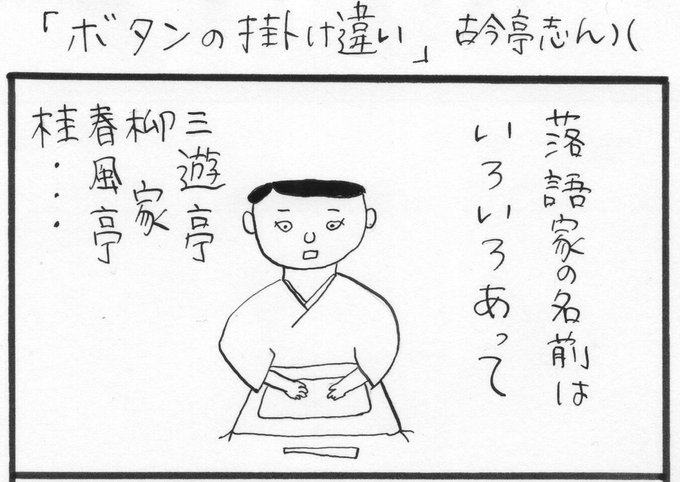 「ボタンの掛け違い」 古今亭志ん八
落語家の名前は
いろいろあって
三遊亭
柳家
春風亭
桂・・・